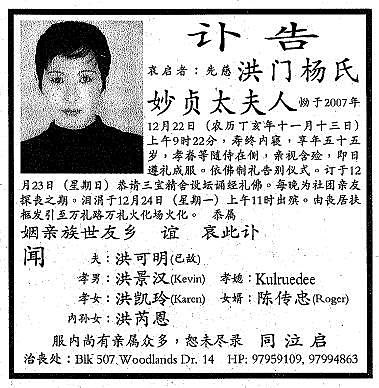 讣告
哀启者：先慈 洪门杨氏
妙贞太夫人 恸于2007年
12月22日（农历丁亥年十一月十三日）
上午9时22分，寿终内寝，享年五十五
岁，孝眷等随侍在侧，亲视含殓，即日
遵礼成服。依佛制礼告别仪式。订于12
月23日（星期日）恭请三宝精舍设坛诵经礼佛。每晚为社团亲友
探丧之期。泪涓于12月24日（星期一）上午11时出殡。由丧居扶
柩发引至万礼路万礼火化场火化。 忝属
姻亲族世友乡 谊 哀此讣
闻
夫：洪可明(已故)
孝男：洪景汉(Kevin) 孝媳：Kulruedee
孝女：洪凯玲(Karen) 女婿：陈传忠(Roger)
内孙女：洪芮恩
服内尚有亲属众多，恕未尽录 同泣启
治丧处：Blk 507 Woodlands Dr. 14 HP: 97959109, 97994863